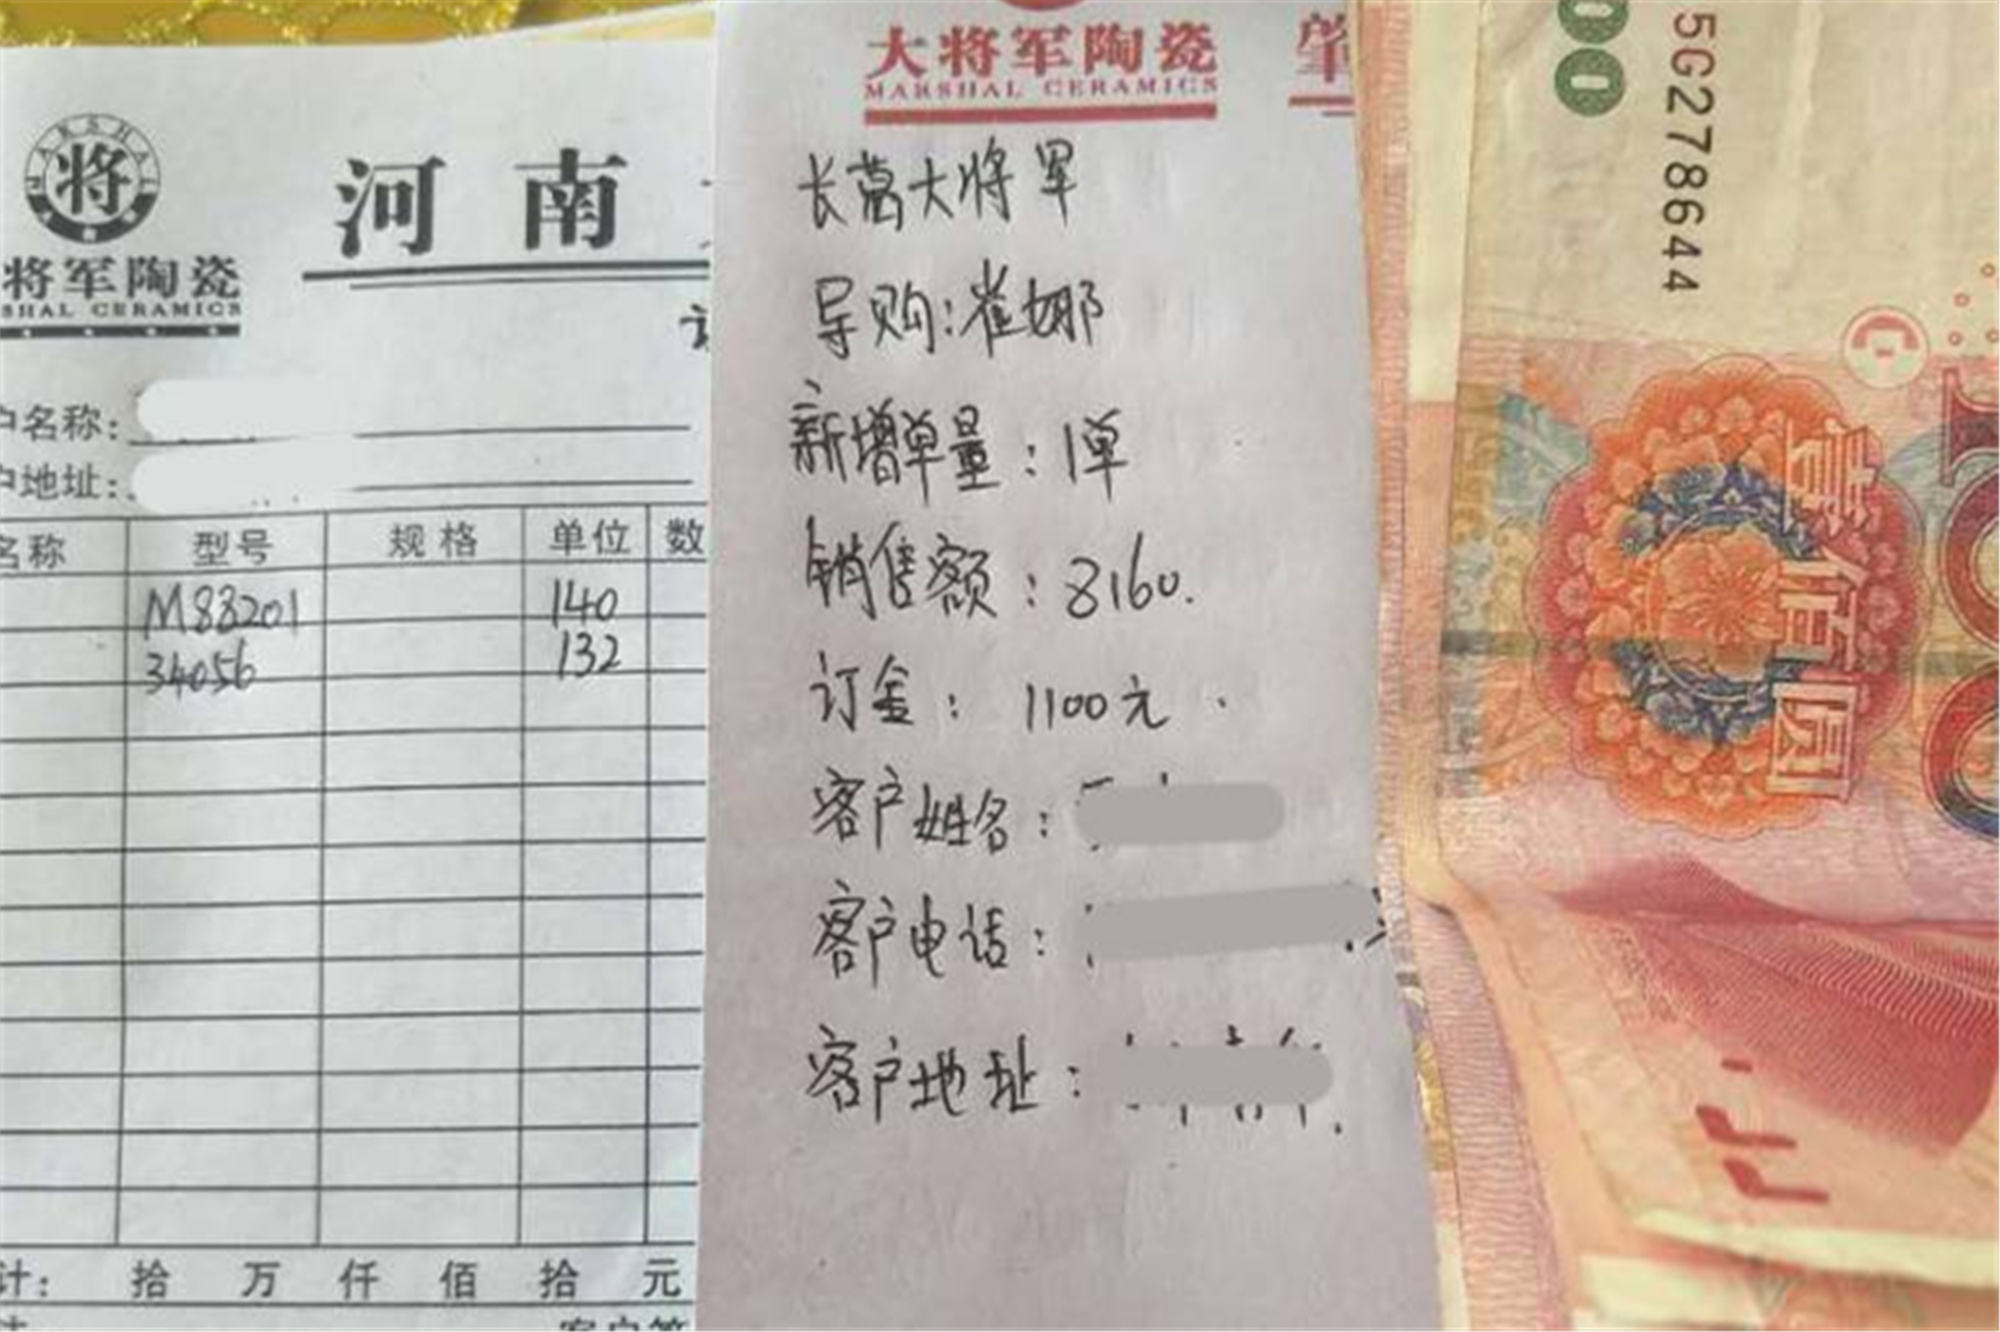 将
将军陶瓷
SHAL CERAMICS
河南
户名称:
户地址:
名称 型号 规格 单位 数
M88201 140
34056 132
计: 拾 万 仟 佰 拾 元
大将军陶瓷
MARSHAL CERAMICS
肇
长葛大将军
导购:崔娜
新增单量:1单
销售额:8160.
订金:1100元.
客户姓名:
客户电话:
客户地址:
5G278644
壹佰圆
100